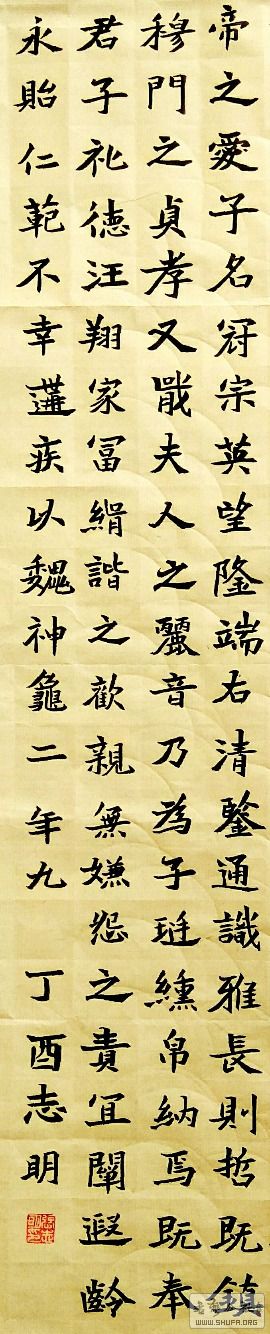 帝之愛子名冠宗英望隆端右清鑒通識雅長則哲既鎮
穆門之貞孝又戢夫人之麗音乃為子琎纁帛納焉既奉
君子礼德汪翔家冨緝諧之歡親無嫌怨之責宜闡遐齡
永貽仁範不幸遘疾以魏神龜二年九
丁酉志明
WWW.SHUFA.ORG